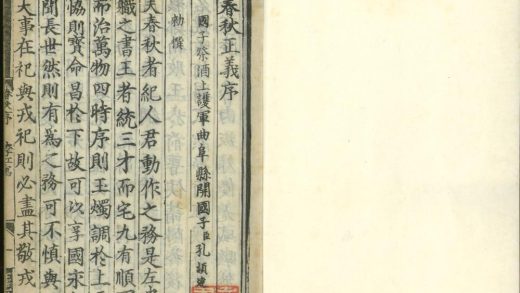 春秋正義序
國子祭酒上護軍曲阜縣開國子臣孔穎達
勑撰
夫春秋者紀人君動作之務是左史
職之書王者統三才而宅九有順四
而治萬物四時序則玉燭調於上三
協則寶命昌於下故可以享國永
聞長世然則有為之務可不慎與
大事在祀與戎祀則必盡其敬戎